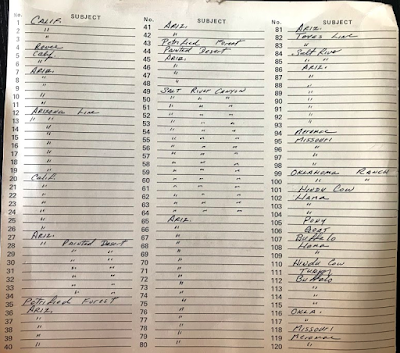 No. SUBJECT
1 CALIF.
2 "
3 "
4
5 Calif
6 "
7 ARIZ.
8 "
9 "
10 "
11 "
12 ARIZONA Line
13 " "
14 "
15 "
16 "
17 "
18 "
19 "
20 Calif.
21 "
22 "
23 "
24 "
25 "
26 "
27 ARIZ.
28 " PAINTED Desert
29 " "
30 " "
31 " "
32 " "
33 " "
34 " "
35 Petrified Forest
36 ARIZ.
37 "
38 "
39 "
40 "
No. SUBJECT
41 ARIZ
42 "
43 Petrified Forest
44 Painted Desert
45 ARIZ.
46 "
47 "
48 "
49 SALT RIVER CANYON
50 " " "
51 " " "
52 " " "
53 " " "
54 " " "
55 " " "
56 " " "
57 " " "
58 " " "
59 " " "
60 " " "
61 " " "
62 " " "
63 " " "
64 " " "
65 ARIZ.
66 "
67 "
68 "
69 "
70 "
71 "
72 "
73 "
74 "
75 "
76 "
77 "
78 "
79 "
80 "
No. SUBJECT
81 ARIZ
82 Line
83 "
84 "
85 Salt River
86 " "
87 ARIZ.
88 "
89 "
90 "
91 "
92 "
93 "
94
95 MISSOURI
96 "
97 "
98 "
99 OKLAHOMA RANCH
100 " "
101 HINDU COW
102
103 "
104 "
105
106
107 Buffalo
108
109 "
110 HINDU COW
111
112 Buffalo
113 "
114 "
115 "
116 OKLA.
117 "
118 MISSOURI
119
120 "